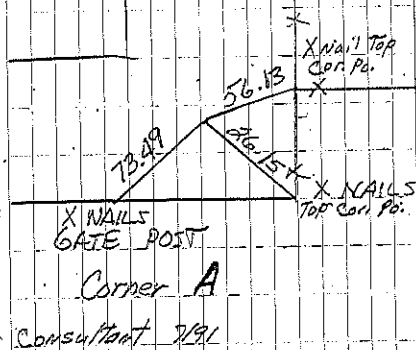 X Nail Top
Cor. Po.
56.13
X
73.49
26.15
X NAILS
Top Cor. Po.
X NAILS
GATE POST
Corner A
Consultant 7/91